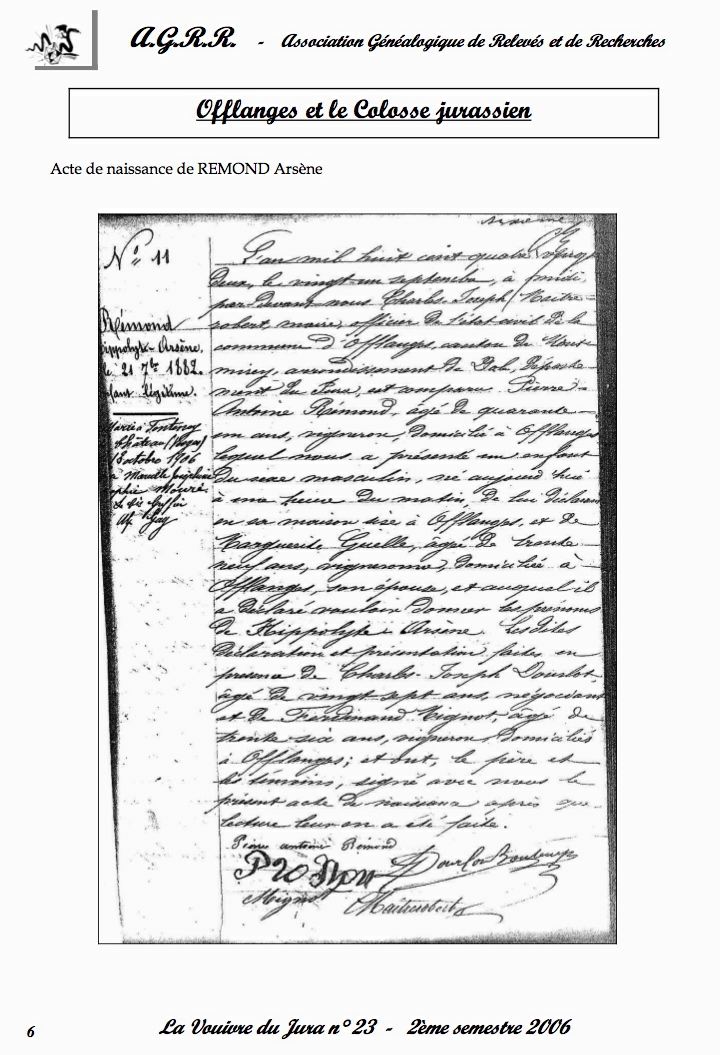 A.G.R.R. - Association Généalogique de Relevés et de Recherches
Offlanges et le Colosse jurassien
Acte de naissance de REMOND Arsène
N° 11
Rémond
Hippolyte-Arsène,
le 21 7bre 1882.
enfant légitime.
Marié à Fontenoy
le château (Vosges)
octobre 1906
à Marcelle Joséphine
Sophie
L'an mil huit cent quatre vingt
deux, le vingt un septembre, à midi,
par devant nous Charles Joseph Maitre-
robert, maire, officier de l'état civil de la
commune d'Offlanges, canton de Mont
mirey, arrondissement de Dole, départe
ment du Jura, est comparu Pierre-
Antoine Rémond, âgé de quarante
un ans, vigneron, domicilié à Offlanges
lequel nous a présenté un enfant
du sexe masculin, né aujourd'hui
à une heure du matin, de lui déclarant
en sa maison sise à Offlanges, et de
Marguerite Guelle, âgée de trente
neuf ans, vigneronne, domiciliée à
Offlanges, son épouse, et auquel il
a déclaré vouloir donner les prénoms
de Hippolyte Arsène. Lesdites
déclaration et présentation faites en
présence de Charles Joseph Dourlot,
âgé de vingt sept ans, négociant
et de Ferdinand Mignot, âgé de
trente six ans, vigneron, domiciliés
à Offlanges; et ont, le père et
les témoins, signé avec nous le
présent acte de naissance après que
lecture leur en a été faite.
Pierre antoine Rémond
Mignot Maitrerobert
6
La Vouivre du Jura n° 23 - 2ème semestre 2006